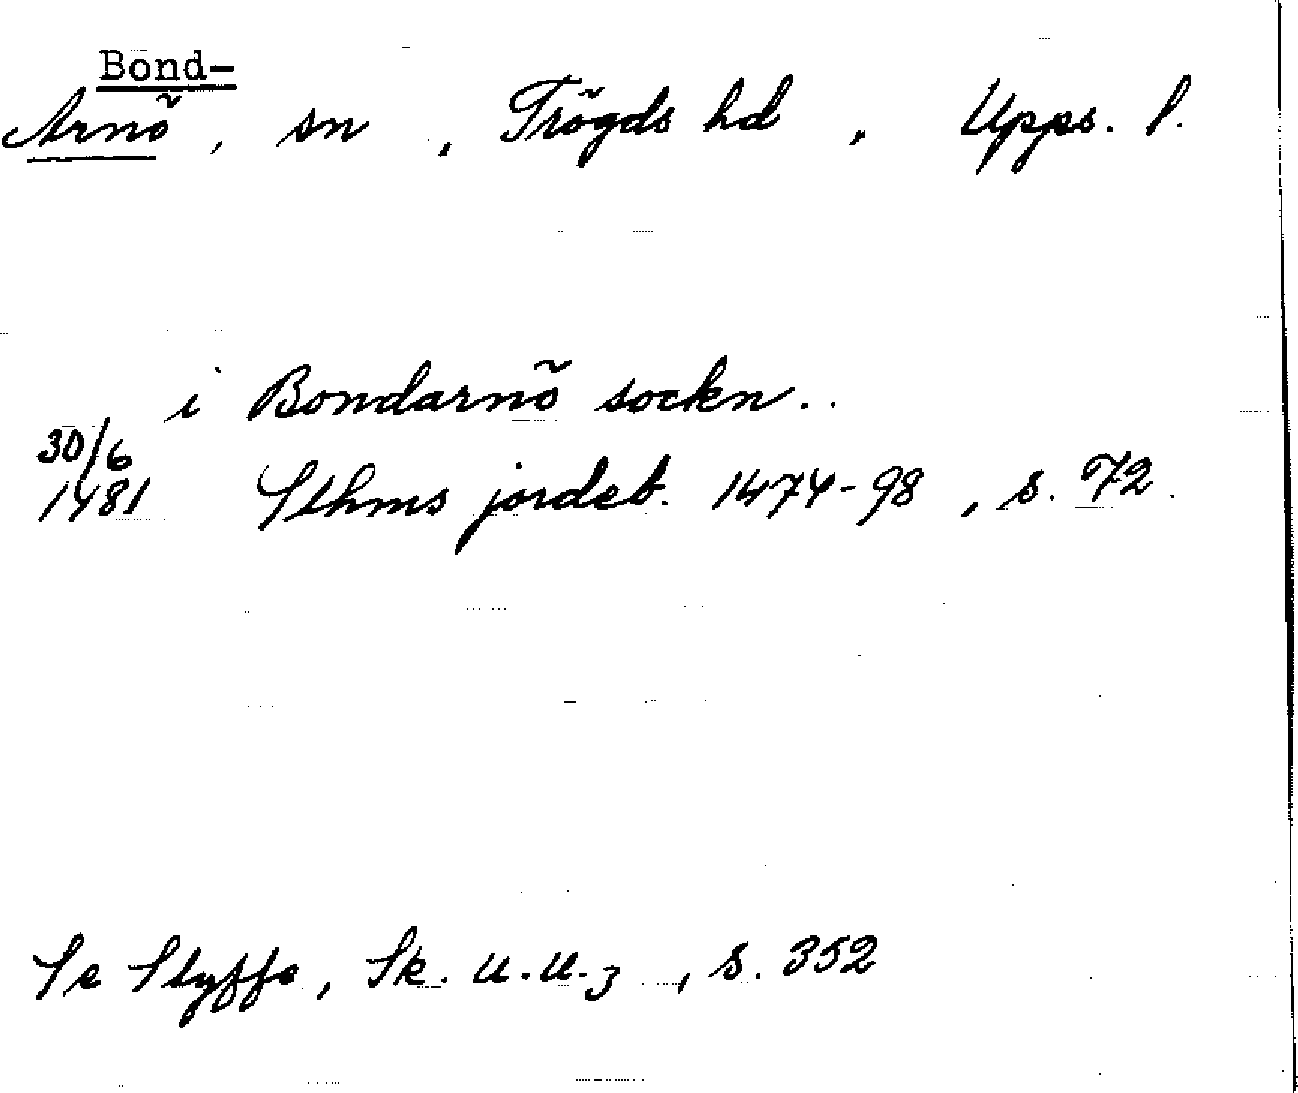 Bond-
Arnö, sn, Trögds hd, Upps. l.
i Bondarnö sockn..
30/6
1481 Sthms jordeb. 1474-98, s. 72.
Se Styffe, Sk. u. U. 3, s. 352